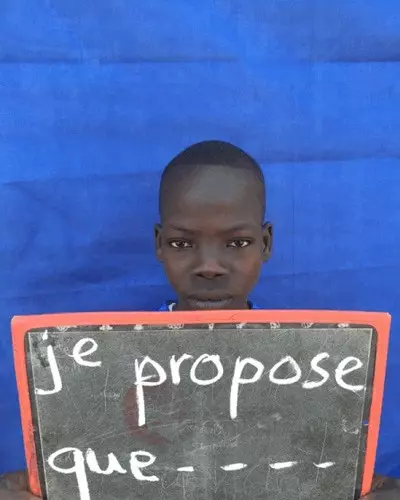 je propose
que - - - -